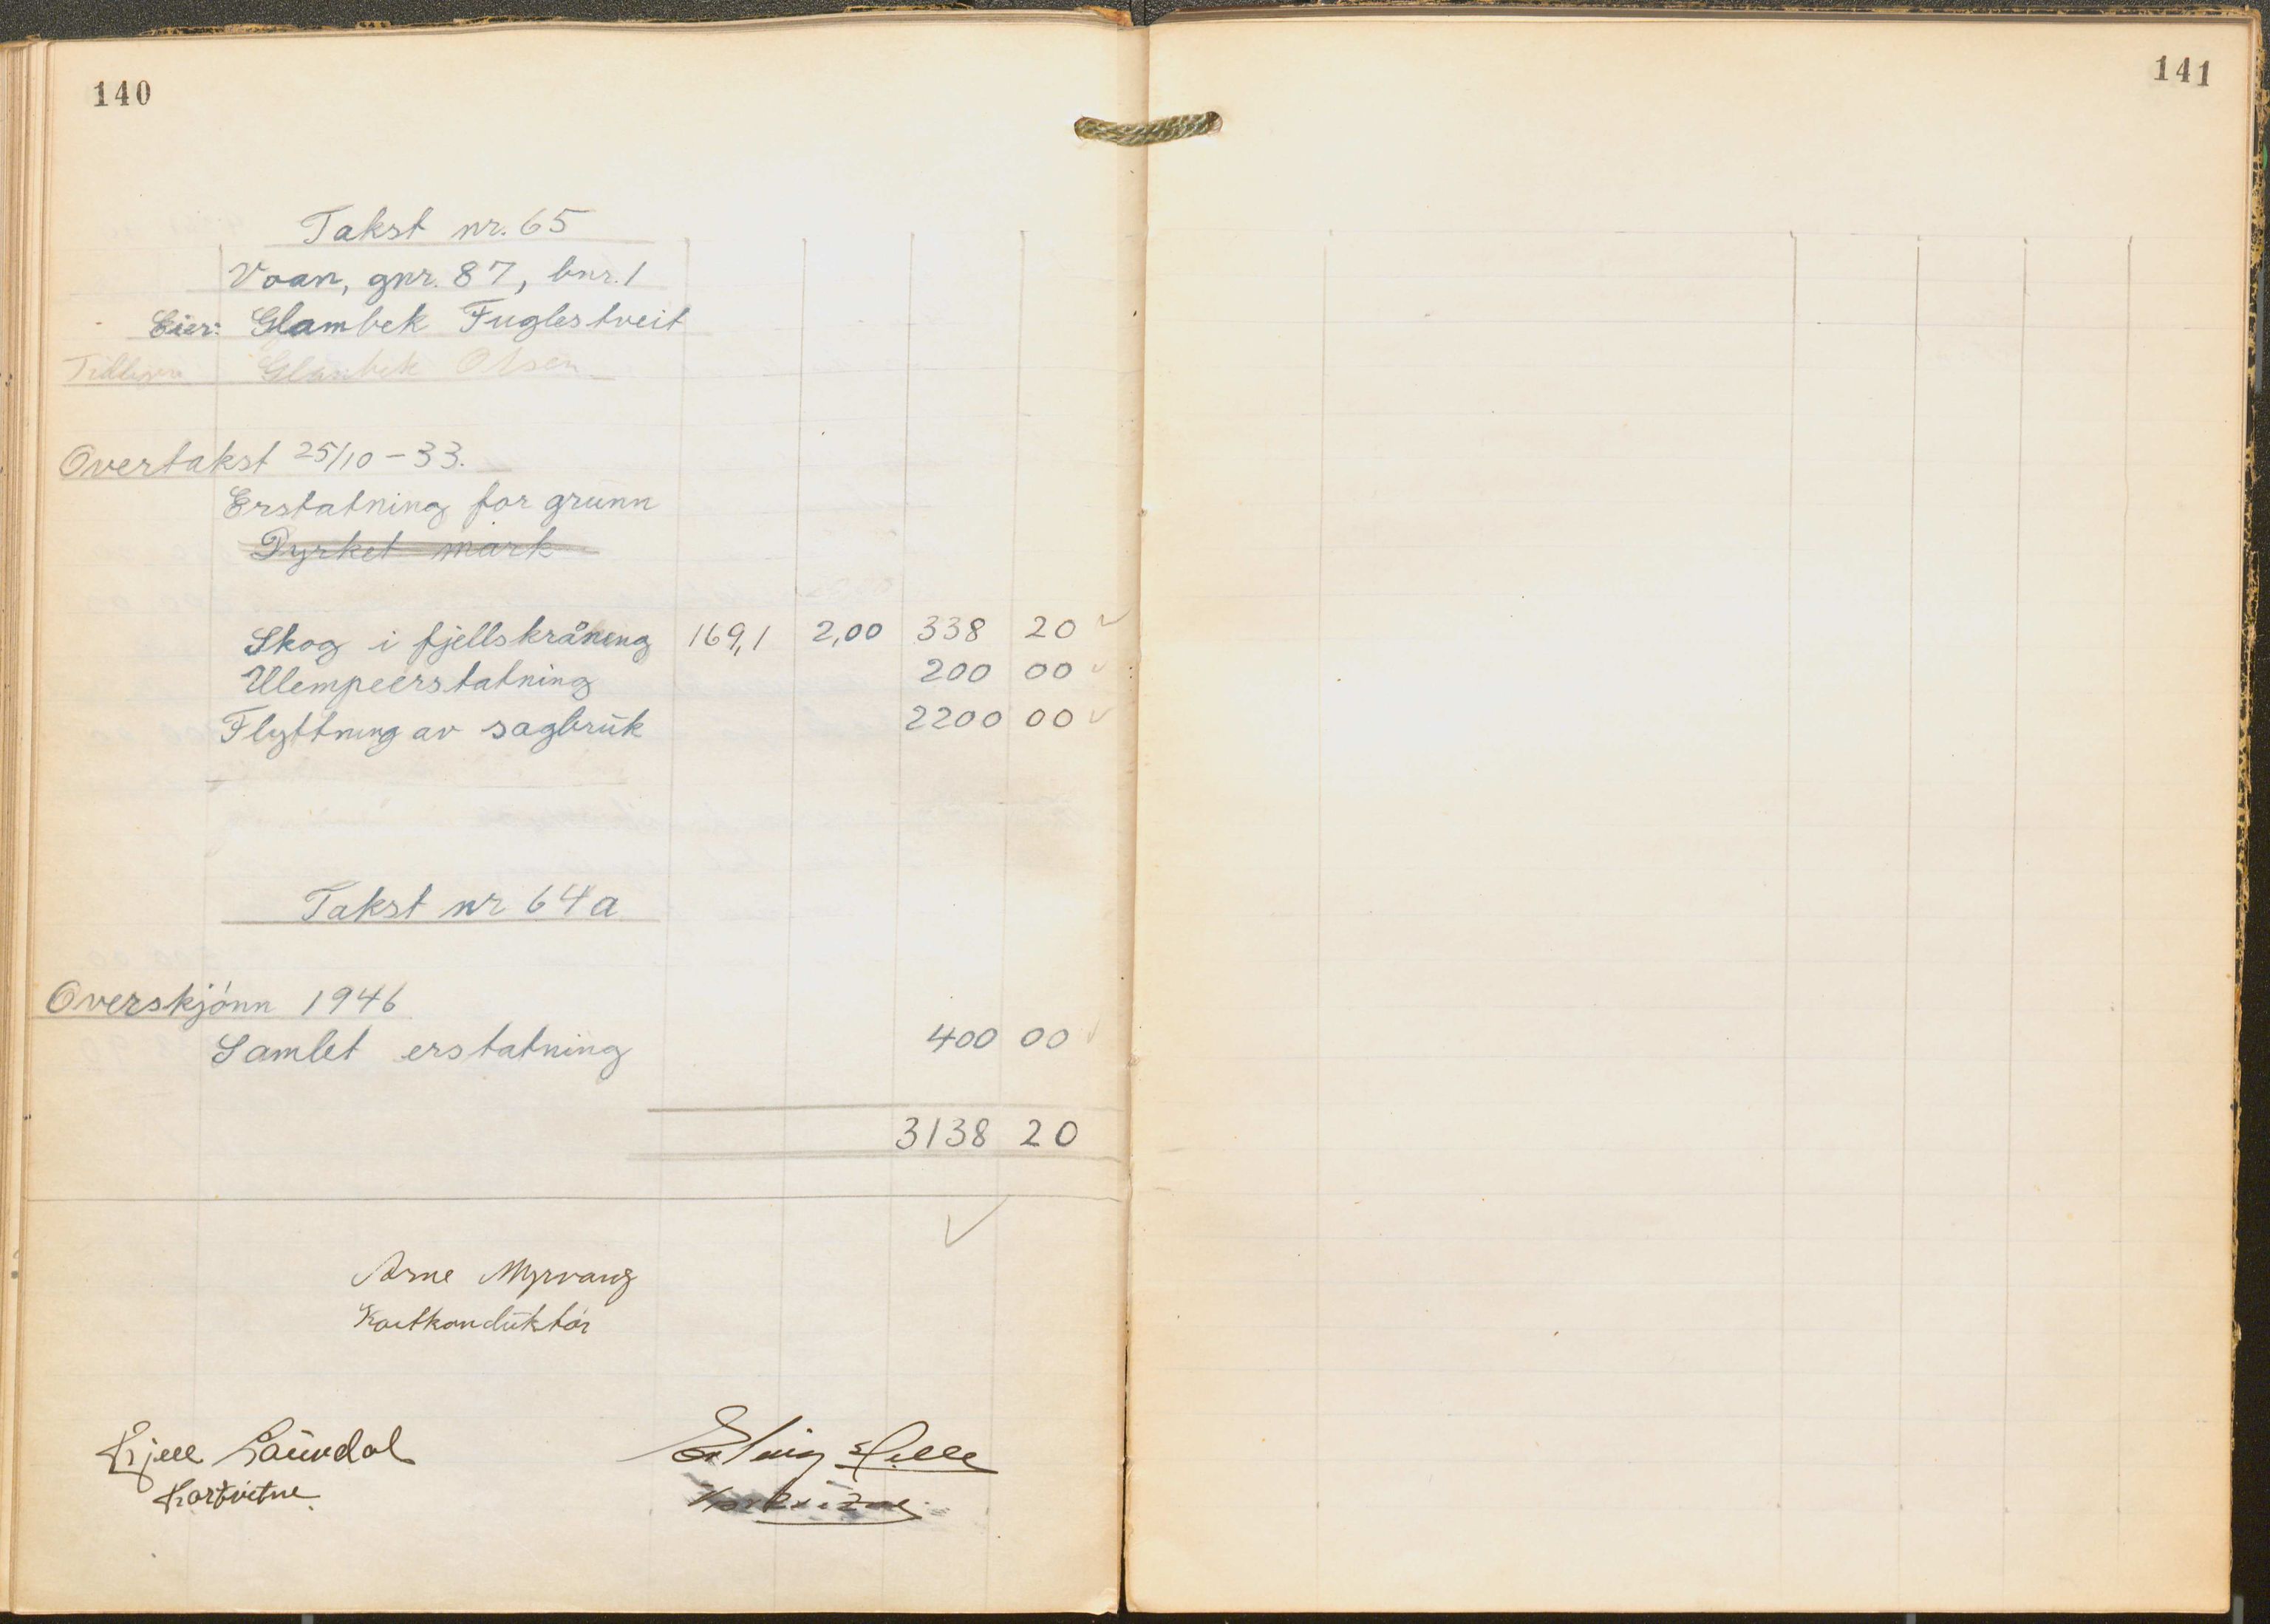 140
Takst nr. 65
Voan, gnr. 87, bnr. 1
Eier: Glambek Fuglestveit
Tidligere Glambek Olsen
Overtakst 25/10-33.
Erstatning for grunn
Dyrket mark
Skog i fjellskråning 169,1 2,00 338 20 ✓
Ulempeerstatning 200 00 ✓
Flyttning av sagbruk 2200 00 ✓
Takst nr 64a
Overskjønn 1946
Samlet erstatning 400 00 ✓
3138 20
✓
Arne Myrvang
Kartkonduktør
Kjell Laundal
Kartvitne.
Erling Helle
Kartvitne.
141